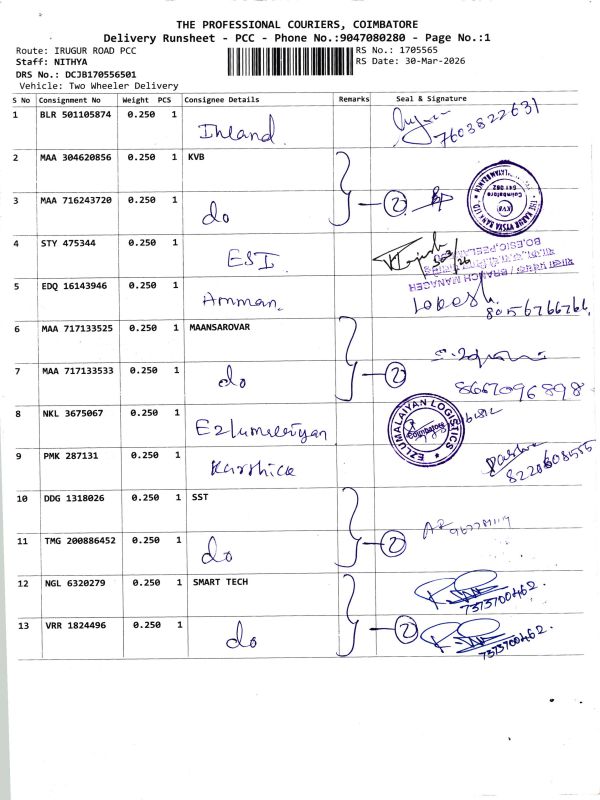 THE PROFESSIONAL COURIERS, COIMBATORE
Delivery Runsheet - PCC - Phone No.:9047080280 - Page No.:1
Route: IRUGUR ROAD PCC
RS No.: 1705565
Staff: NITHYA
RS Date: 30-Mar-2026
DRS No.: DCJB170556501
Vehicle: Two Wheeler Delivery
S No Consignment No Weight PCS Consignee Details Remarks Seal & Signature
1 BLR 501105874 0.250 1 Inland 7603822631
2 MAA 304620856 0.250 1 KVB
3 MAA 716243720 0.250 1 do 2
4 STY 475344 0.250 1 ESI
5 EDQ 16143946 0.250 1 Amman. 8056766766
6 MAA 717133525 0.250 1 MAANSAROVAR
7 MAA 717133533 0.250 1 do 2 8667096898
8 NKL 3675067 0.250 1 Ezlumalaiyan EZLUMALAIYAN LOGISTICS Coimbatore
9 PMK 287131 0.250 1 Karthica 8220608555
10 DDG 1318026 0.250 1 SST
11 TMG 200886452 0.250 1 do 2
12 NGL 6320279 0.250 1 SMART TECH 7373700462.
13 VRR 1824496 0.250 1 do 2 7373700462.